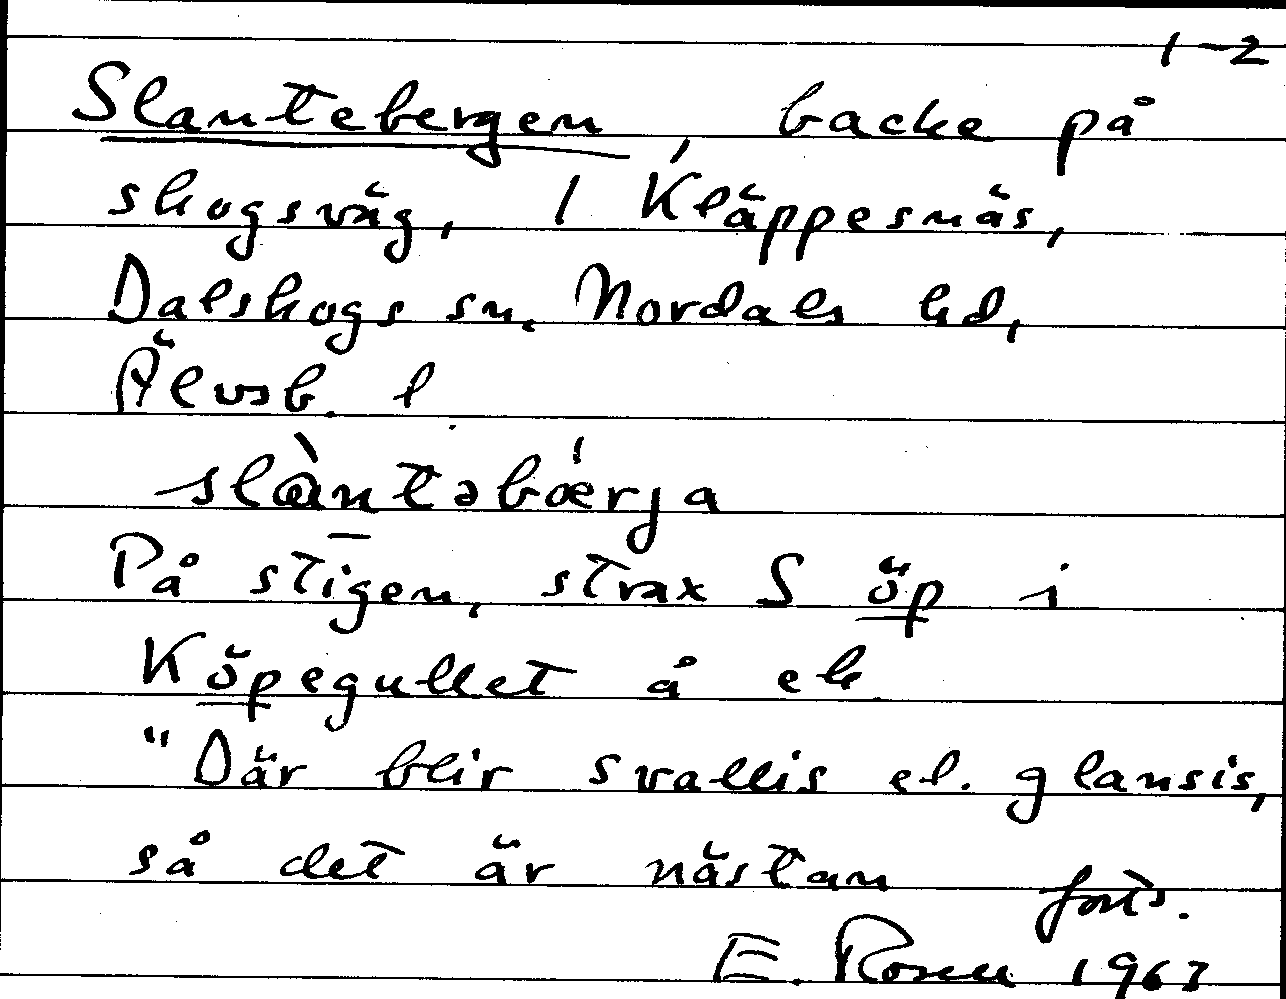 1-2
Slantebergen, backe på
skogsväg, 1 Kläppesnäs,
Dalskogs sn. Nordals hd,
Älvsb. l
slàntəbǽrja
På stigen, strax S öp i
Köpegullet å ek
"Där blir svallis el. glansis,
så det är nästan forts.
E. Rosen 1963